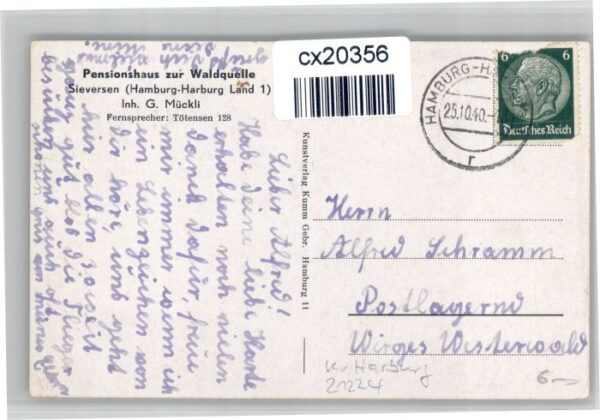 cx20356
Pensionshaus zur Waldquelle
Sieversen (Hamburg-Harburg Land 1)
Inh. G. Mückli
Fernsprecher: Tötensen 128
Kunstverlag Kumm Gebr. Hamburg 11
HAMBURG-H
25.10.40.
r
6 6
Deutsches Reich
Lieber Alfred!
Habe deine liebe Karte
erhalten noch vielen
Dank dafür, freue
mir immer wenn ich
ein Lebenzeichen von
dir höre, uns geht
hier allen soweit
ganz gut bis die Flieger
besuchen uns auch oft
Herrn
Alfred Schramm
Postlagernd
Wirges Westerwald
Kr Harburg
21224
6.—